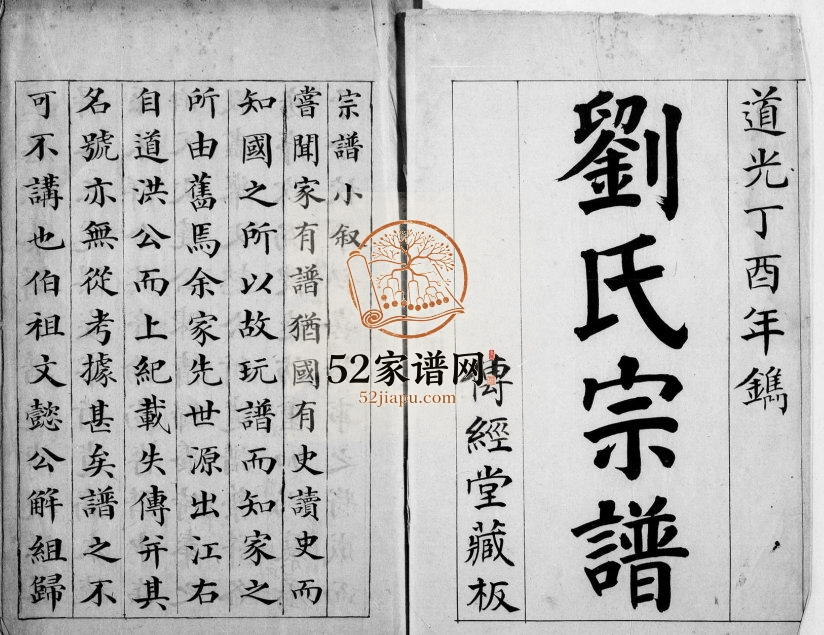 道光丁酉年鐫
劉氏宗譜
傳經堂藏板
宗譜小叙
嘗聞家有譜猶國有史讀史而
知國之所以故玩譜而知家之
所由舊焉余家先世源出江右
自道洪公而上紀載失傳并其
名號亦無從考據甚矣譜之不
可不講也伯祖文懿公解組歸
52家谱网
52jiapu.com